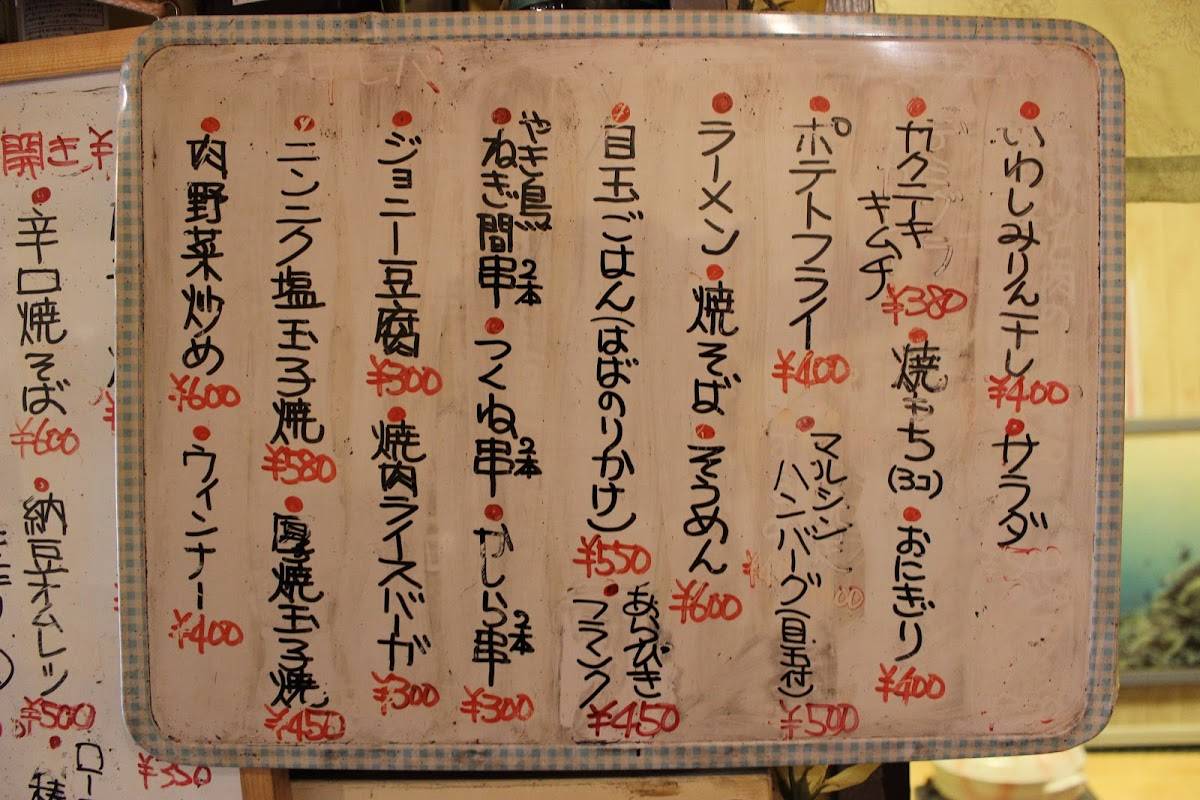 いわしみりん干し ¥400
サラダ
カクテキ
キムチ ¥380
焼もち(3コ)
おにぎり ¥400
ポテトフライ ¥400
マルシン
ハンバーグ(目玉付) ¥500
ラーメン
焼そば
そうめん ¥600
目玉ごはん(はばのりかけ) ¥550
あらびき
フランク ¥450
やき鳥
ねぎ間串 2本
つくね串 2本
かしら串 2本 ¥300
ジョニー豆腐 ¥300
焼肉ライスバーガ ¥300
ニンニク塩玉子焼 ¥580
厚焼玉子焼 ¥450
肉野菜炒め ¥600
ウィンナー ¥400
¥350
開き ¥
辛口焼そば ¥600
納豆オムレツ ¥500